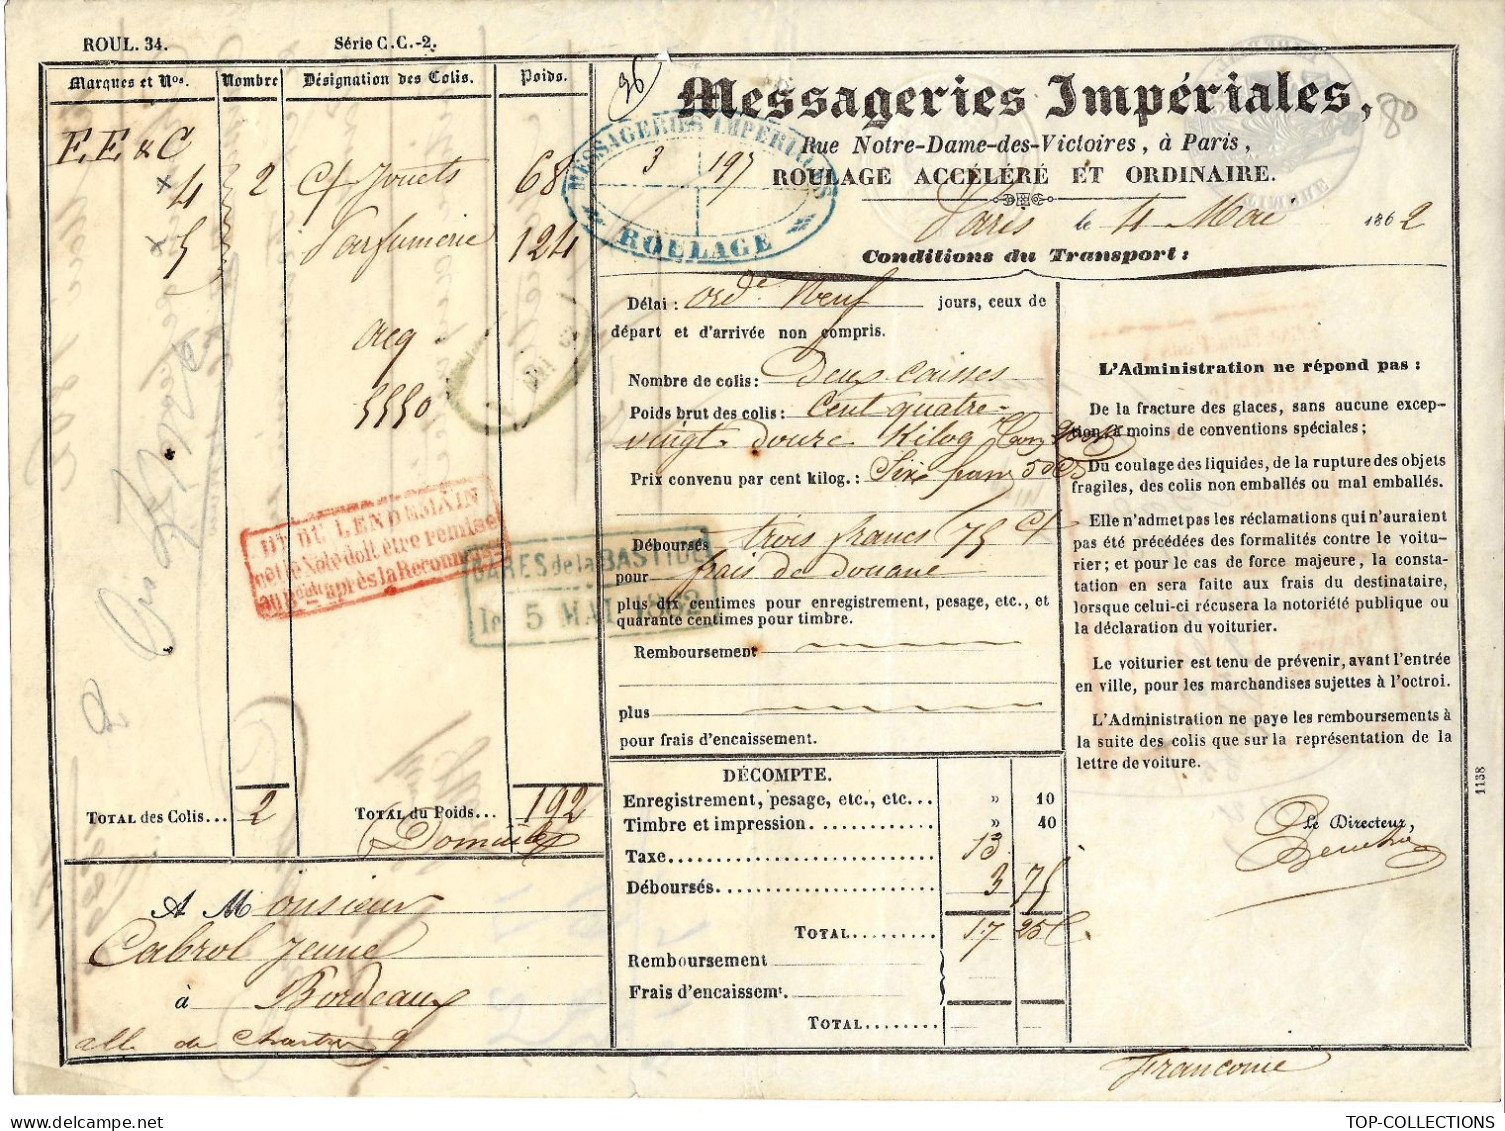 ROUL. 34.
Série C.C.-2.
Marques et Nos. Nombre Désignation des Colis. Poids.
E E & C
4 2 Jouets 68
5 Parfumerie 124
acq
5550
Dt DU LENDEMAIN
cette Note doit être remise
après la Reconnaiss
GARES de la BASTIDE
le 5 MAI 1862
TOTAL des Colis... 2 TOTAL du Poids... 192
Domicile
A Monsieur
Cabrol Jeune
à Bordeaux
all. de Chartres 9
36
MESSAGERIES IMPERIALES
3 197
ROULAGE
Messageries Impériales,
80
Rue Notre-Dame-des-Victoires, à Paris,
ROULAGE ACCÉLÉRÉ ET ORDINAIRE.
TIMBRE
Paris le 4 Mai 1862
Conditions du Transport:
Délai: orde Neuf jours, ceux de
départ et d'arrivée non compris.
Nombre de colis: Deux caisses
Poids brut des colis: Cent quatre-
vingt douze Kilog
Prix convenu par cent kilog.: Six francs 50 Cs
Déboursés trois francs 75 Ct
pour frais de douane
plus dix centimes pour enregistrement, pesage, etc., et
quarante centimes pour timbre.
Remboursement
plus
pour frais d'encaissement.
DÉCOMPTE.
Enregistrement, pesage, etc., etc... » 10
Timbre et impression............. » 40
Taxe........................... 13
Déboursés...................... 3 75
TOTAL........... 17 25 C
Remboursement
Frais d'encaissemt.
TOTAL........
L'Administration ne répond pas:
De la fracture des glaces, sans aucune excep-
tion, à moins de conventions spéciales;
Du coulage des liquides, de la rupture des objets
fragiles, des colis non emballés ou mal emballés.
Elle n'admet pas les réclamations qui n'auraient
pas été précédées des formalités contre le voitu-
rier; et pour le cas de force majeure, la consta-
tation en sera faite aux frais du destinataire,
lorsque celui-ci récusera la notoriété publique ou
la déclaration du voiturier.
Le voiturier est tenu de prévenir, avant l'entrée
en ville, pour les marchandises sujettes à l'octroi.
L'Administration ne paye les remboursements à
la suite des colis que sur la représentation de la
lettre de voiture.
Le Directeur,
1138
Franconie
TOP-COLLECTIONS